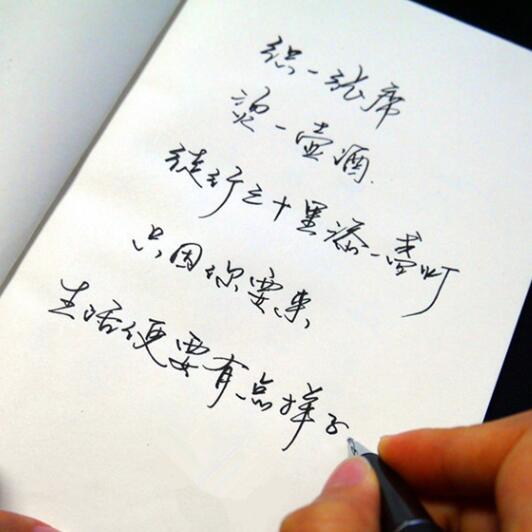 织一张席
烫一壶酒.
徒行三十里添一盏灯
只因你要来
生活便要有点样子